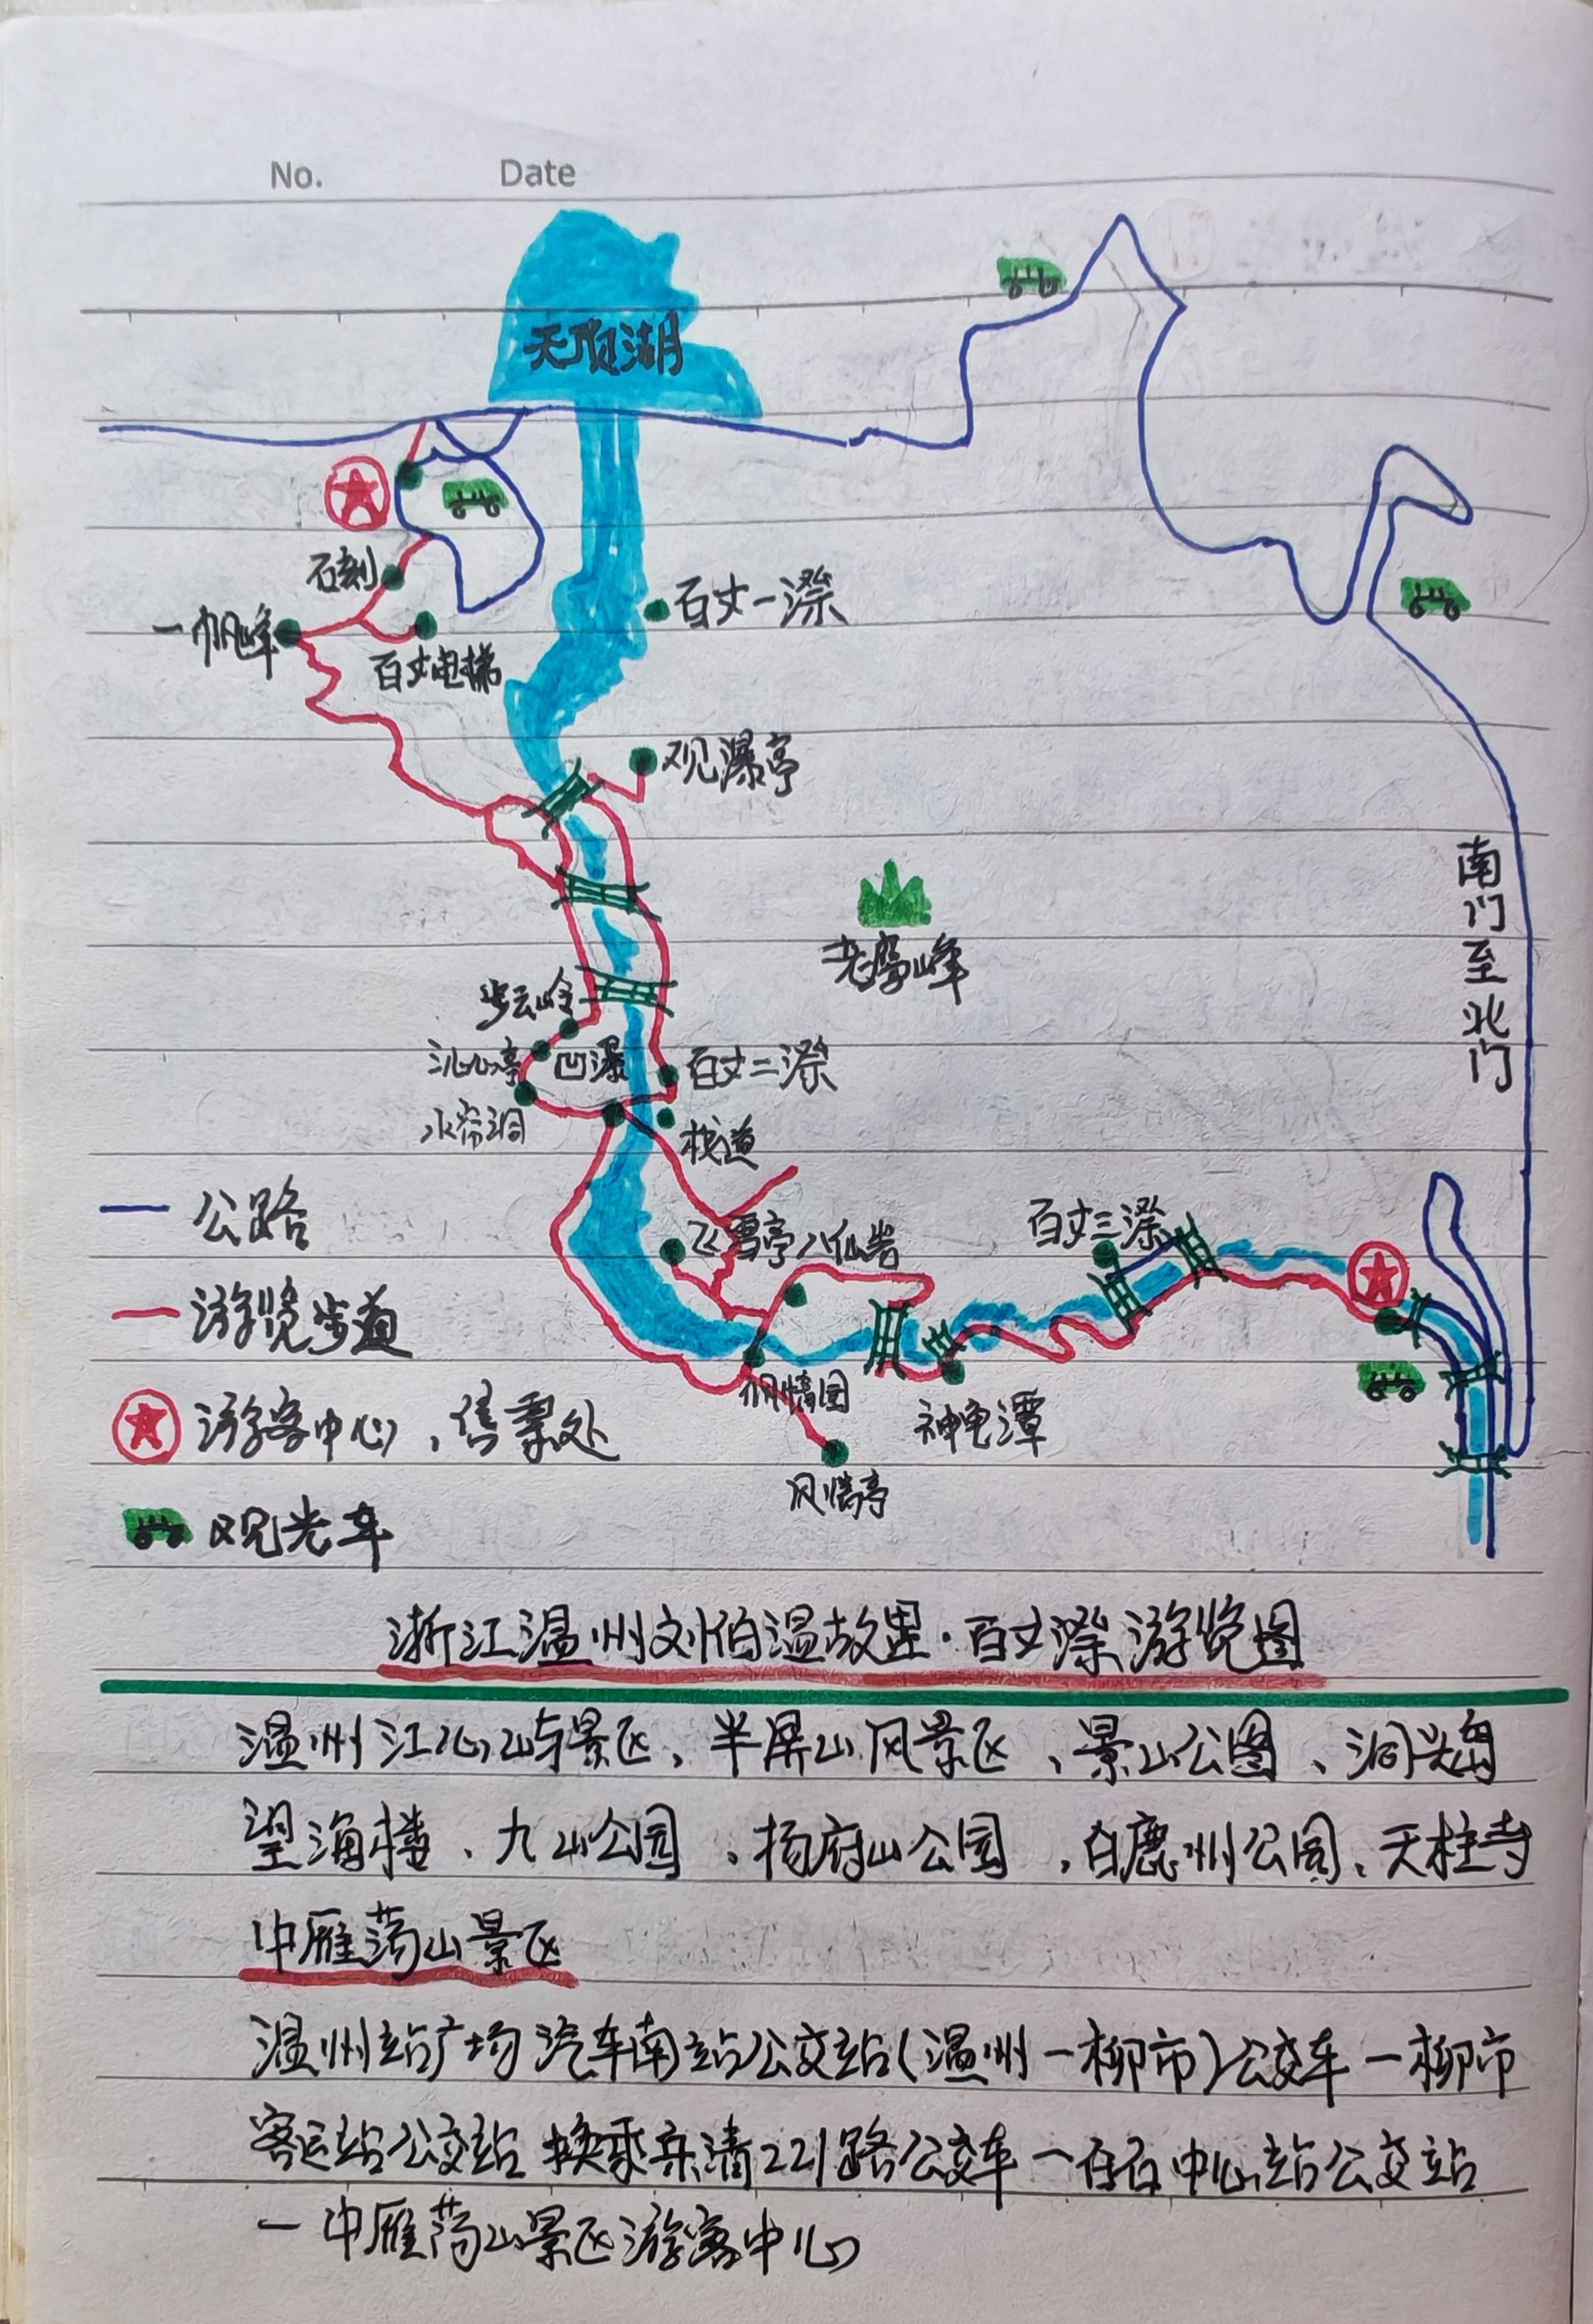 No. Date
天顶湖
石刻
一帆峰
百丈电梯
百丈一漈
观瀑亭
老鹰峰
南门至北门
步云岭
沁心亭
凹瀑
百丈二漈
水帘洞
栈道
公路
飞雪亭
八仙岩
百丈三漈
游览步道
游客中心，售票处
神龟潭
风情亭
观光车
浙江温州刘伯温故里·百丈漈游览图
温州江心屿景区、半屏山风景区、景山公园、洞头岛
望海楼、九山公园、杨府山公园、白鹿洲公园、天柱寺
中雁荡山景区
温州站广场汽车南站公交站(温州一柳市)公交车一柳市
客运站公交站换乘乐清221路公交车一白石中心站公交站
一中雁荡山景区游客中心